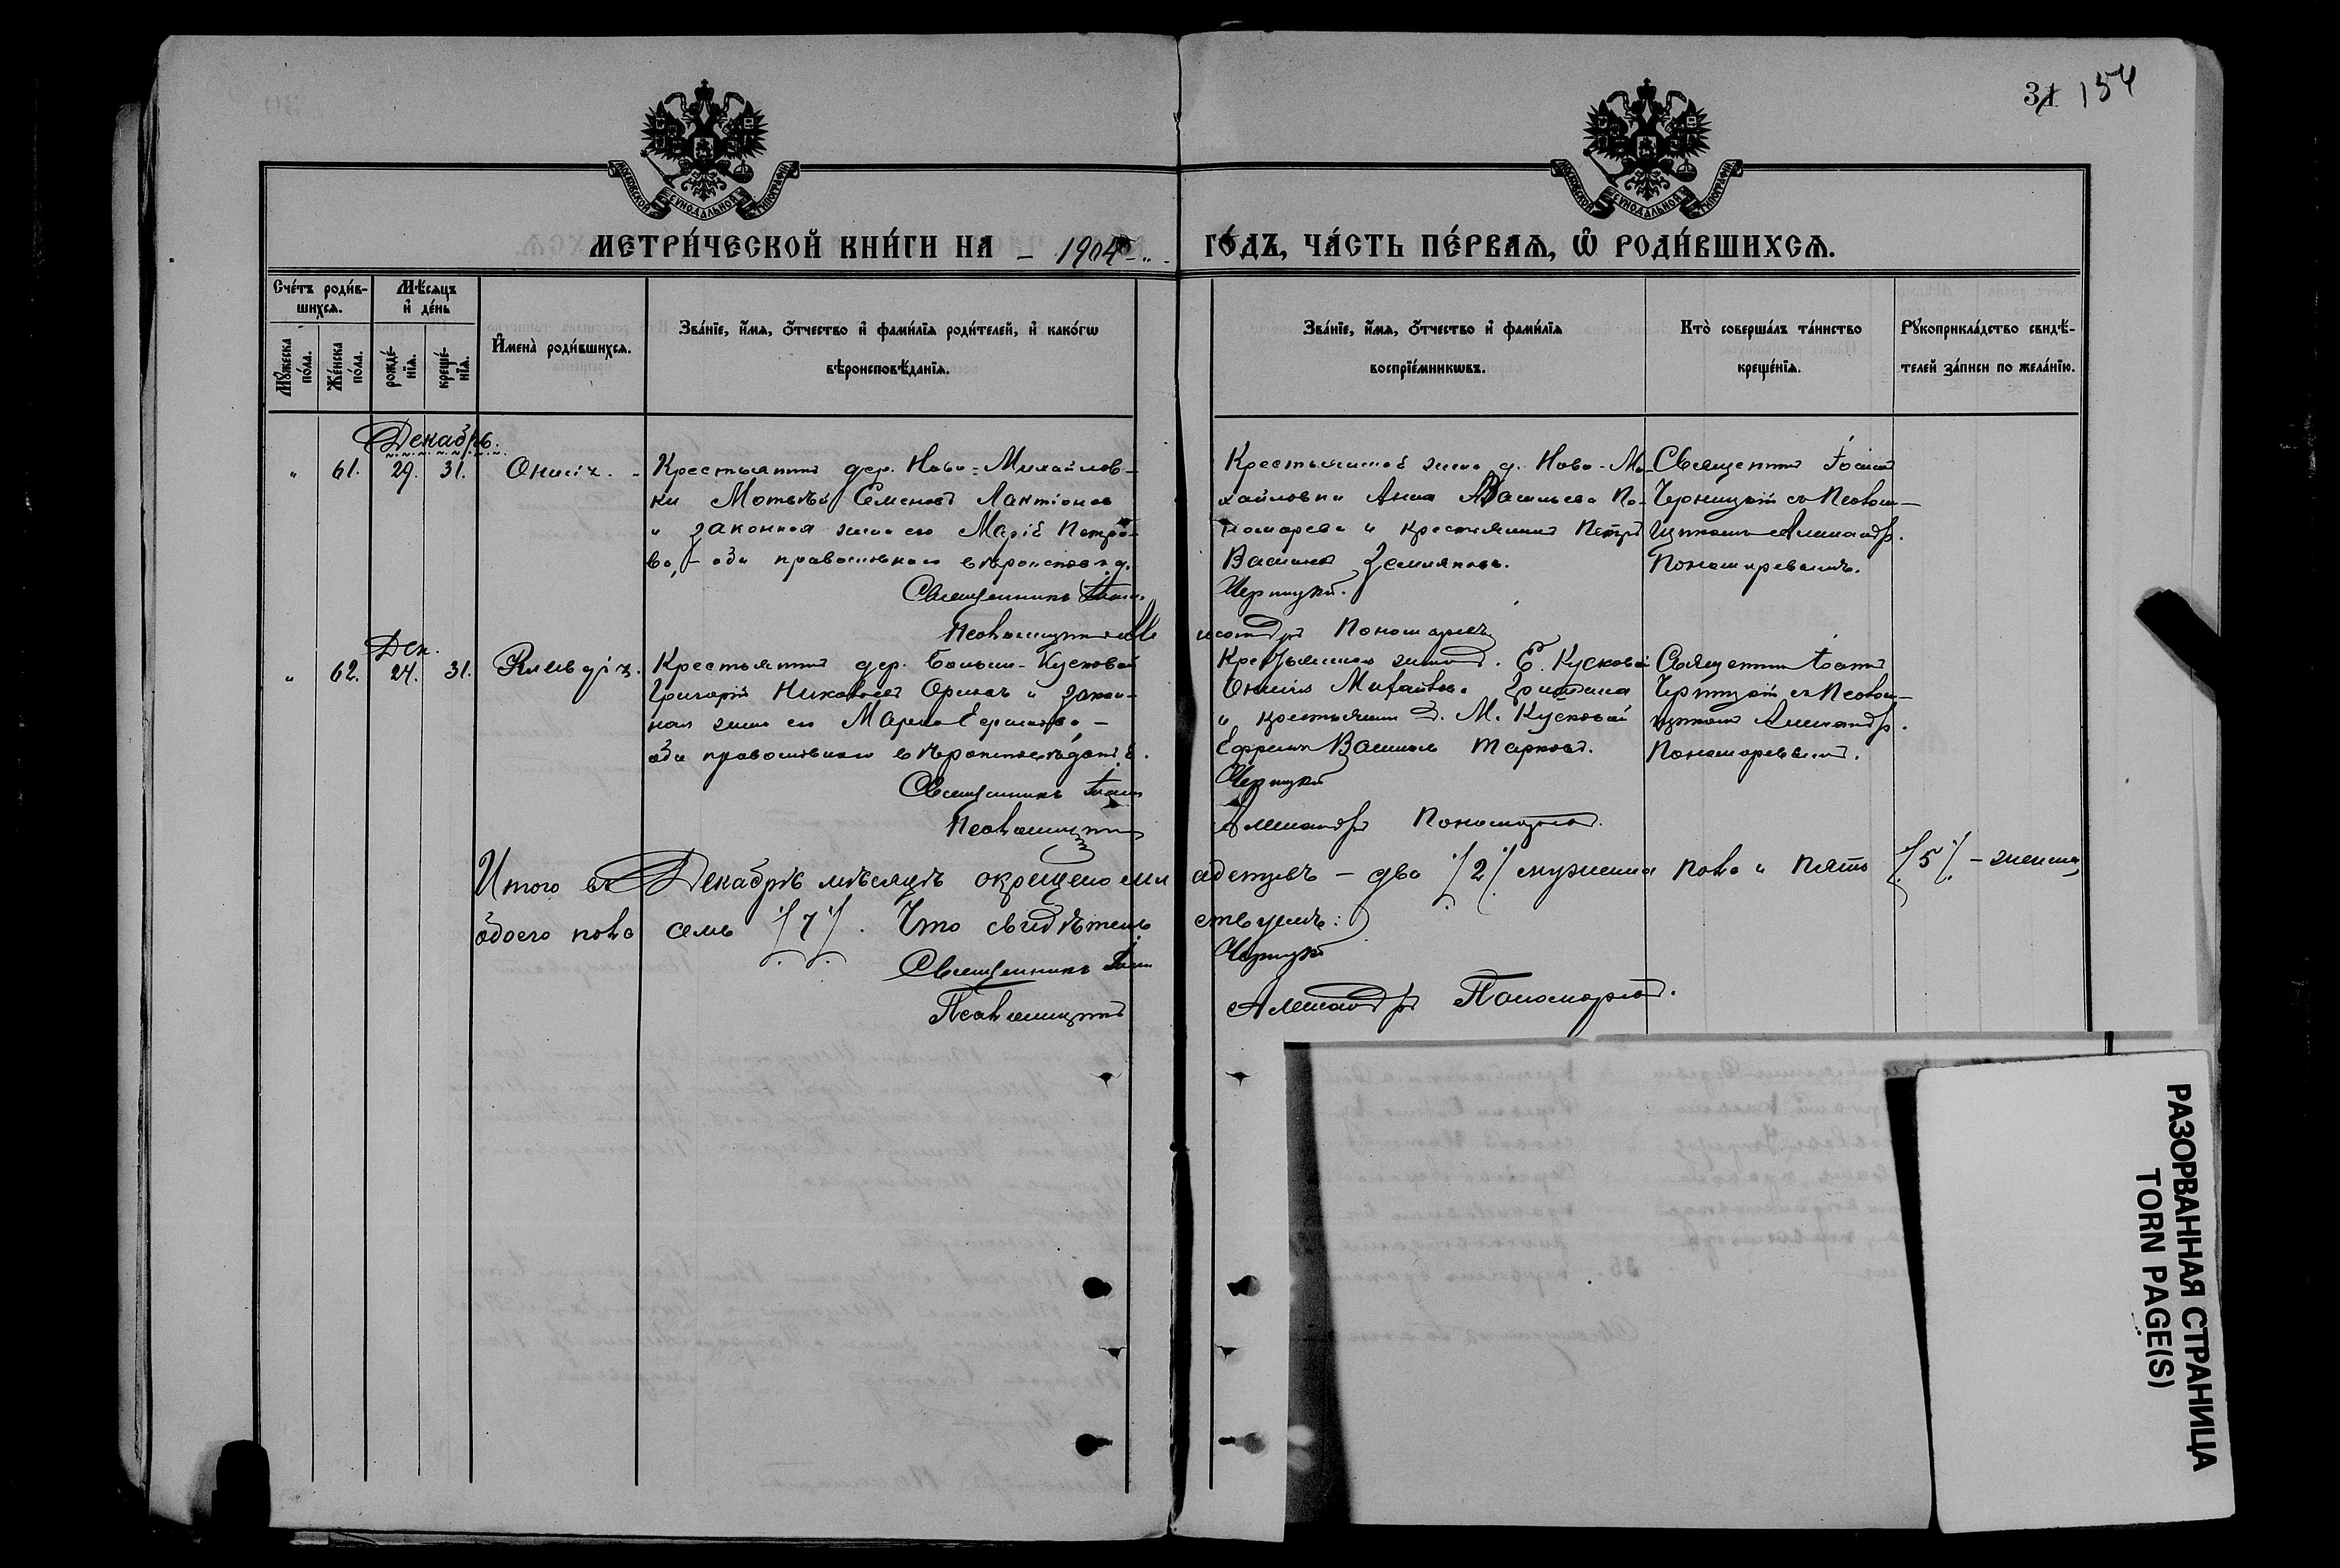 31 154
МОСКОВСКОЙ СѴНОДАЛЬНОЙ ТИПОГРАФІИ
МОСКОВСКОЙ СѴНОДАЛЬНОЙ ТИПОГРАФІИ
МЕТРИ́ЧЕСКОЙ КНИ́ГИ НА 1904
ГО́ДЪ, ЧА́СТЬ ПЕ́РВАѦ, Ѡ РОДИ́ВШИХСѦ.
Сче́тъ роди́в-
шихсѧ.
Мꙋ́жеска по́ла.
Же́нска по́ла.
Мѣ́сѧцъ и҆ де́нь
рожде́-
нїѧ.
креще́-
нїѧ.
И҆мена̀ роди́вшихсѧ.
Зва́нїе, и҆́мѧ, ѻ҆́тчество и҆ фами́лїѧ роди́телей, и҆ како́гѡ
вѣроисповѣ́данїѧ.
Зва́нїе, и҆́мѧ, ѻ҆́тчество и҆ фами́лїѧ
воспрїе́мникѡвъ.
Кто̀ соверша́лъ та́инство
креще́нїѧ.
Рꙋкоприкла́дство свидѣ́-
телей за́писи по жела́нїю.
Декабрь.
" 61. 29. 31.
Крестьянинъ дер. Ново-Михайлов-
ки Семеновъ Лактіоновъ
и законная жена его Марія Петро-
ва, оба православнаго вѣроисповѣд.
Священникъ Іоаннъ
Крестьянская жена д. Ново-Ми-
хайловки Анна Васильева По-
номарева и крестьянинъ Петръ
Василіевъ Земляковъ.
Черницкій.
Александръ Пономаревъ
Священникъ Іоаннъ
Черницкій съ Псалом-
щикомъ Александр.
Пономаревымъ.
Дек.
" 62. 24. 31.
Крестьянинъ дер. Больш-Кусковой
Григорій Николаевъ и закон-
ная жена его Марія
оба православнаго вѣроисповѣданія.
Священникъ Іоаннъ
Псаломщикъ
Крестьянская жена д. Б. Кусковой
и крестьянинъ д. М. Кусковой
Ефремъ Василіевъ Марковъ.
Черницкій
Александръ Пономаревъ.
Священникъ Іоаннъ
Черницкій съ Псалом-
щикомъ Александр.
Пономаревымъ.
Итого въ Декабрѣ мѣсяцѣ окрещено мла
аденцевъ – два /2/ мужеска пола и пять /5/ – женска,
обоего пола семь /7/. Что свидѣтель
ствуемъ:
Священникъ Іоаннъ
Черницкій
Псаломщикъ
Александръ Пономаревъ.
РАЗОРВАННАЯ СТРАНИЦА
TORN PAGE(S)